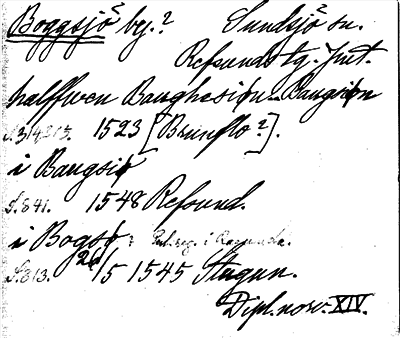 Boggsjö by.? Sundsjö sn.
Refsunds tg. Jmt.
halffwen Baughasiøn - Baugsiøn
S. 314, 315. 1523 [Brunflo?].
i Baugsiø
S. 841. 1548 Refsund.
i Bogsø: Pål. reg. i Ragunda.
S. 813. 26/5 1545 Stugun.
Dipl. norv. XIV.